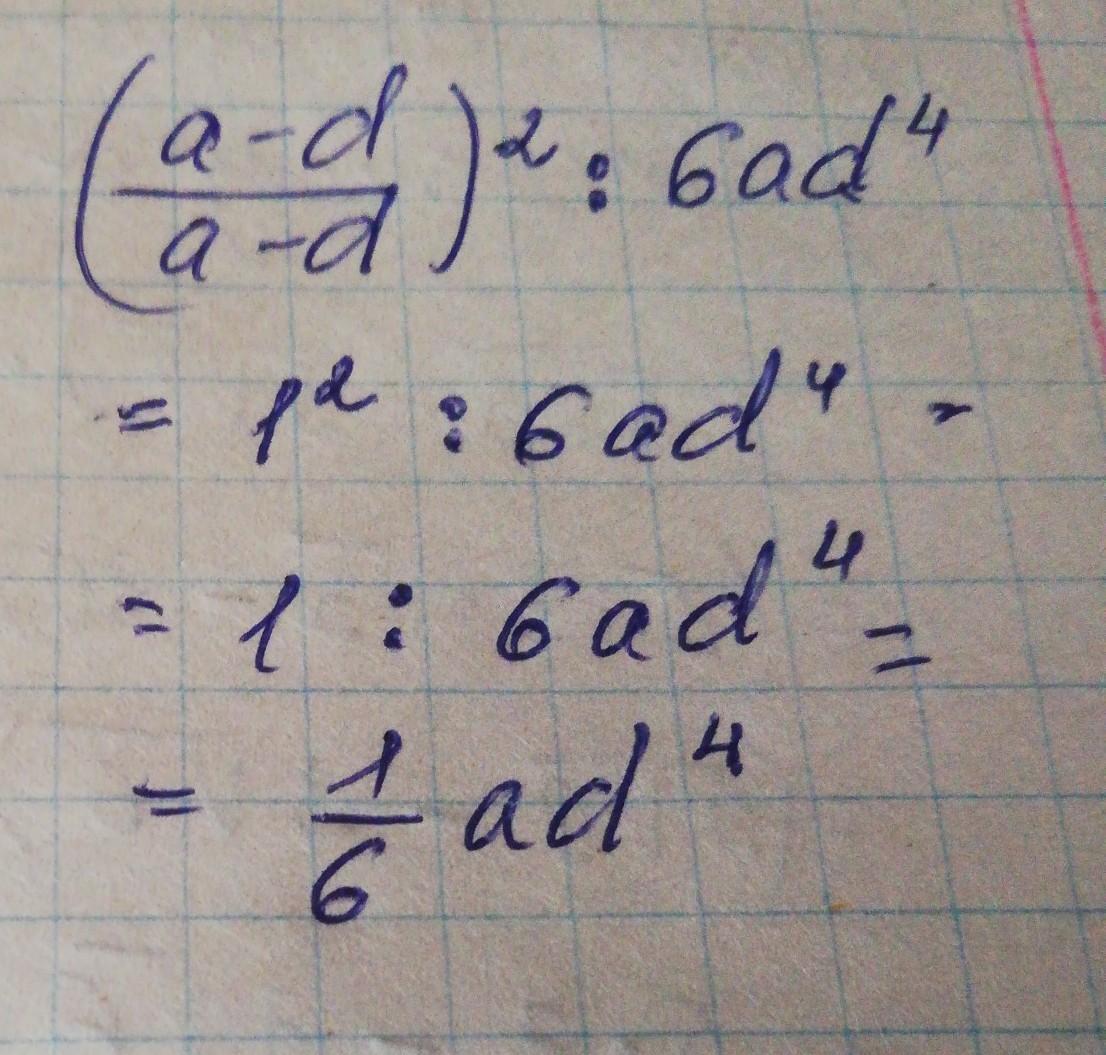 (a-d/a-d)² : 6ad⁴
= 1² : 6ad⁴ -
= 1 : 6ad⁴ =
= 1/6 ad⁴